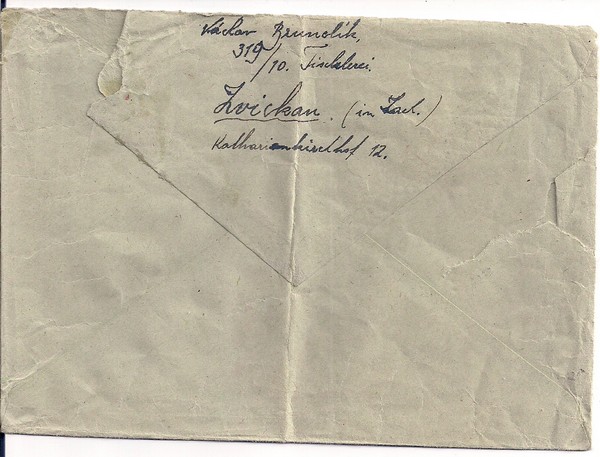 Václav Brunclík,
319/10. Tischlerei.
Zvickau. (im Sach.)
Katharienkirchhof 12.